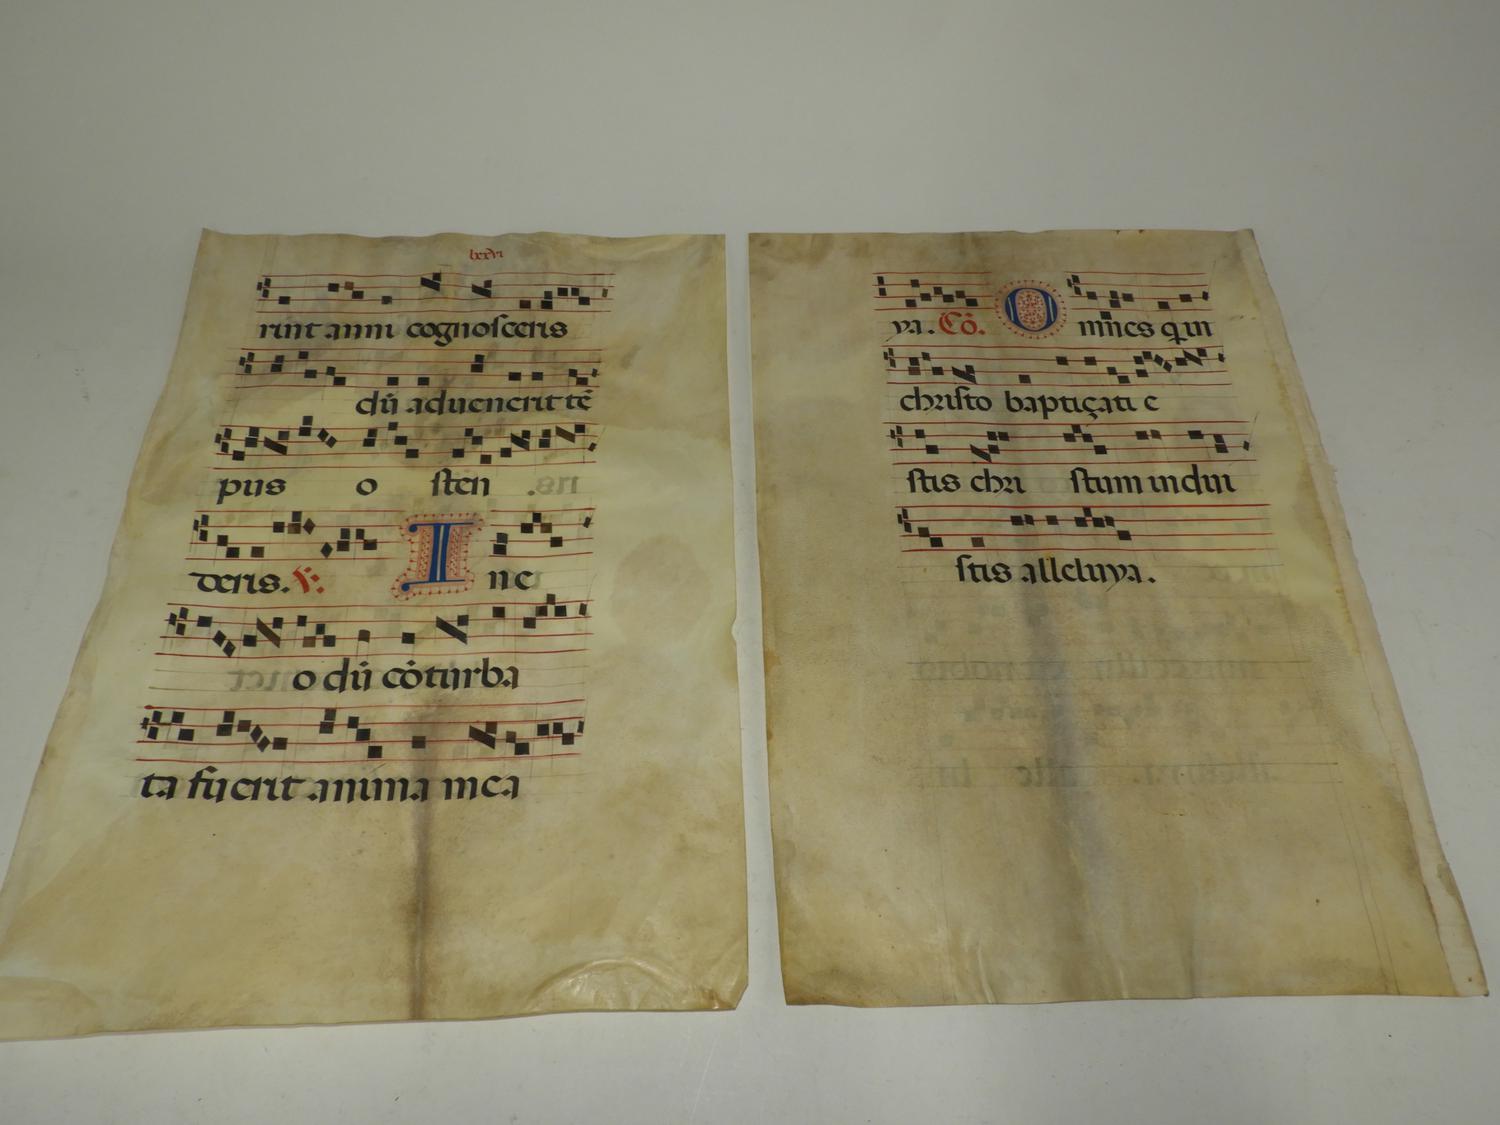 lxxvi
rint anni cognosceris
dū aduenerit tē
pus o sten .
deris. V. I n e
o dū cōturba
ta fuerit anima mea
ya. Cō. O mnes q in
christo baptiçati e
stis chri stum indui
stis alleluya.